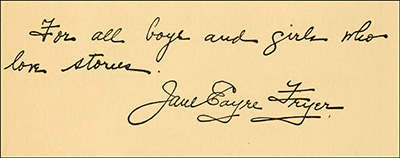 For all boys and girls who
love stories.
Jane Eayre Fryer.